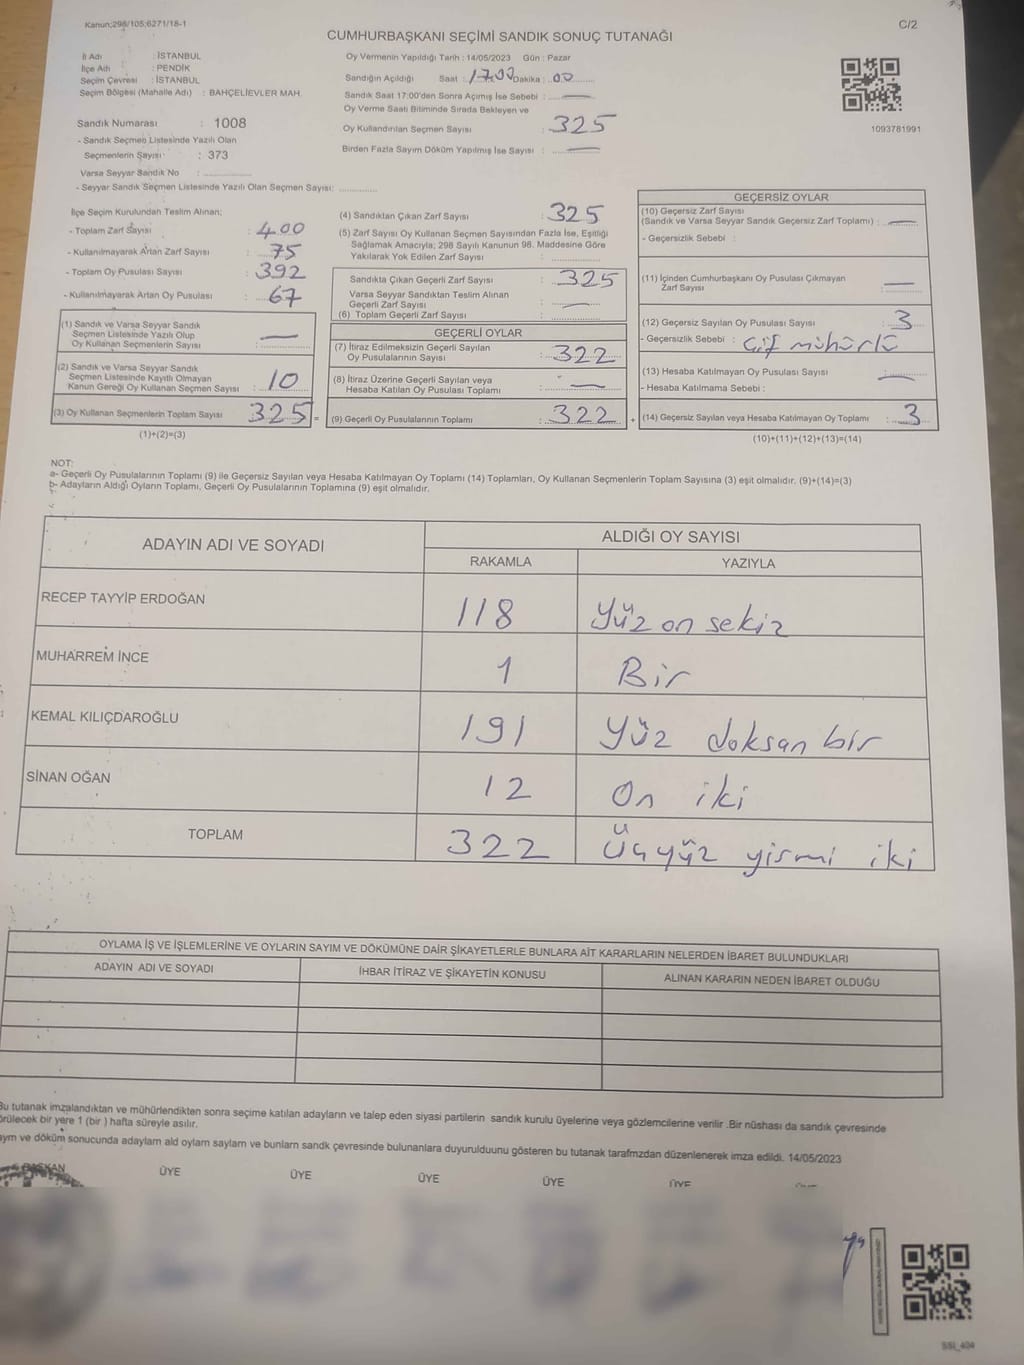 Kanun:298/105;6271/18-1
C/2
CUMHURBAŞKANI SEÇİMİ SANDIK SONUÇ TUTANAĞI
İl Adı : İSTANBUL
İlçe Adı : PENDİK
Seçim Çevresi : İSTANBUL
Seçim Bölgesi (Mahalle Adı) : BAHÇELİEVLER MAH.
Oy Vermenin Yapıldığı Tarih : 14/05/2023 Gün : Pazar
Sandığın Açıldığı Saat : 17.00 Dakika : 00
Sandık Saat 17:00'den Sonra Açımış İse Sebebi : —
Oy Verme Saati Bitiminde Sırada Bekleyen ve
Oy Kullandırılan Seçmen Sayısı : 325
Birden Fazla Sayım Döküm Yapılmış İse Sayısı : —
1093781991
Sandık Numarası : 1008
- Sandık Seçmen Listesinde Yazılı Olan
Seçmenlerin Sayısı : 373
Varsa Seyyar Sandık No :
- Seyyar Sandık Seçmen Listesinde Yazılı Olan Seçmen Sayısı:
İlçe Seçim Kurulundan Teslim Alınan;
- Toplam Zarf Sayısı : 400
- Kullanılmayarak Artan Zarf Sayısı : 75
- Toplam Oy Pusulası Sayısı : 392
- Kullanılmayarak Artan Oy Pusulası : 67
(1) Sandık ve Varsa Seyyar Sandık
Seçmen Listesinde Yazılı Olup
Oy Kullanan Seçmenlerin Sayısı : —
(2) Sandık ve Varsa Seyyar Sandık
Seçmen Listesinde Kayıtlı Olmayan
Kanun Gereği Oy Kullanan Seçmen Sayısı : 10
(3) Oy Kullanan Seçmenlerin Toplam Sayısı 325 =
(1)+(2)=(3)
(4) Sandıktan Çıkan Zarf Sayısı : 325
(5) Zarf Sayısı Oy Kullanan Seçmen Sayısından Fazla İse, Eşitliği
Sağlamak Amacıyla; 298 Sayılı Kanunun 98. Maddesine Göre
Yakılarak Yok Edilen Zarf Sayısı :
Sandıkta Çıkan Geçerli Zarf Sayısı : 325
Varsa Seyyar Sandıktan Teslim Alınan
Geçerli Zarf Sayısı : —
(6) Toplam Geçerli Zarf Sayısı :
GEÇERLİ OYLAR
(7) İtiraz Edilmeksizin Geçerli Sayılan
Oy Pusulalarının Sayısı : 322
(8) İtiraz Üzerine Geçerli Sayılan veya
Hesaba Katılan Oy Pusulası Toplamı : —
(9) Geçerli Oy Pusulalarının Toplamı : 322 +
GEÇERSİZ OYLAR
(10) Geçersiz Zarf Sayısı
(Sandık ve Varsa Seyyar Sandık Geçersiz Zarf Toplamı) : —
- Geçersizlik Sebebi :
(11) İçinden Cumhurbaşkanı Oy Pusulası Çıkmayan
Zarf Sayısı : —
(12) Geçersiz Sayılan Oy Pusulası Sayısı : 3
- Geçersizlik Sebebi : Çif mühürlü
(13) Hesaba Katılmayan Oy Pusulası Sayısı : —
- Hesaba Katılmama Sebebi :
(14) Geçersiz Sayılan veya Hesaba Katılmayan Oy Toplamı : 3
(10)+(11)+(12)+(13)=(14)
NOT:
a- Geçerli Oy Pusulalarının Toplamı (9) ile Geçersiz Sayılan veya Hesaba Katılmayan Oy Toplamı (14) Toplamları, Oy Kullanan Seçmenlerin Toplam Sayısına (3) eşit olmalıdır. (9)+(14)=(3)
b- Adayların Aldığı Oyların Toplamı, Geçerli Oy Pusulalarının Toplamına (9) eşit olmalıdır.
ADAYIN ADI VE SOYADI
ALDIĞI OY SAYISI
RAKAMLA YAZIYLA
RECEP TAYYİP ERDOĞAN 118 Yüz on sekiz
MUHARREM İNCE 1 Bir
KEMAL KILIÇDAROĞLU 191 Yüz doksan bir
SİNAN OĞAN 12 On iki
TOPLAM 322 Üçyüz yirmi iki
OYLAMA İŞ VE İŞLEMLERİNE VE OYLARIN SAYIM VE DÖKÜMÜNE DAİR ŞİKAYETLERLE BUNLARA AİT KARARLARIN NELERDEN İBARET BULUNDUKLARI
ADAYIN ADI VE SOYADI İHBAR İTİRAZ VE ŞİKAYETİN KONUSU ALINAN KARARIN NEDEN İBARET OLDUĞU
Bu tutanak imzalandıktan ve mühürlendikten sonra seçime katılan adayların ve talep eden siyasi partilerin sandık kurulu üyelerine veya gözlemcilerine verilir .Bir nüshası da sandık çevresinde
örülecek bir yere 1 (bir ) hafta süreyle asılır.
ayım ve döküm sonucunda adaylam ald oylam saylam ve bunlarn sandk çevresinde bulunanlara duyurulduunu gösteren bu tutanak tarafmzdan düzenlenerek imza edildi. 14/05/2023
BAŞKAN ÜYE ÜYE ÜYE ÜYE ÜYE